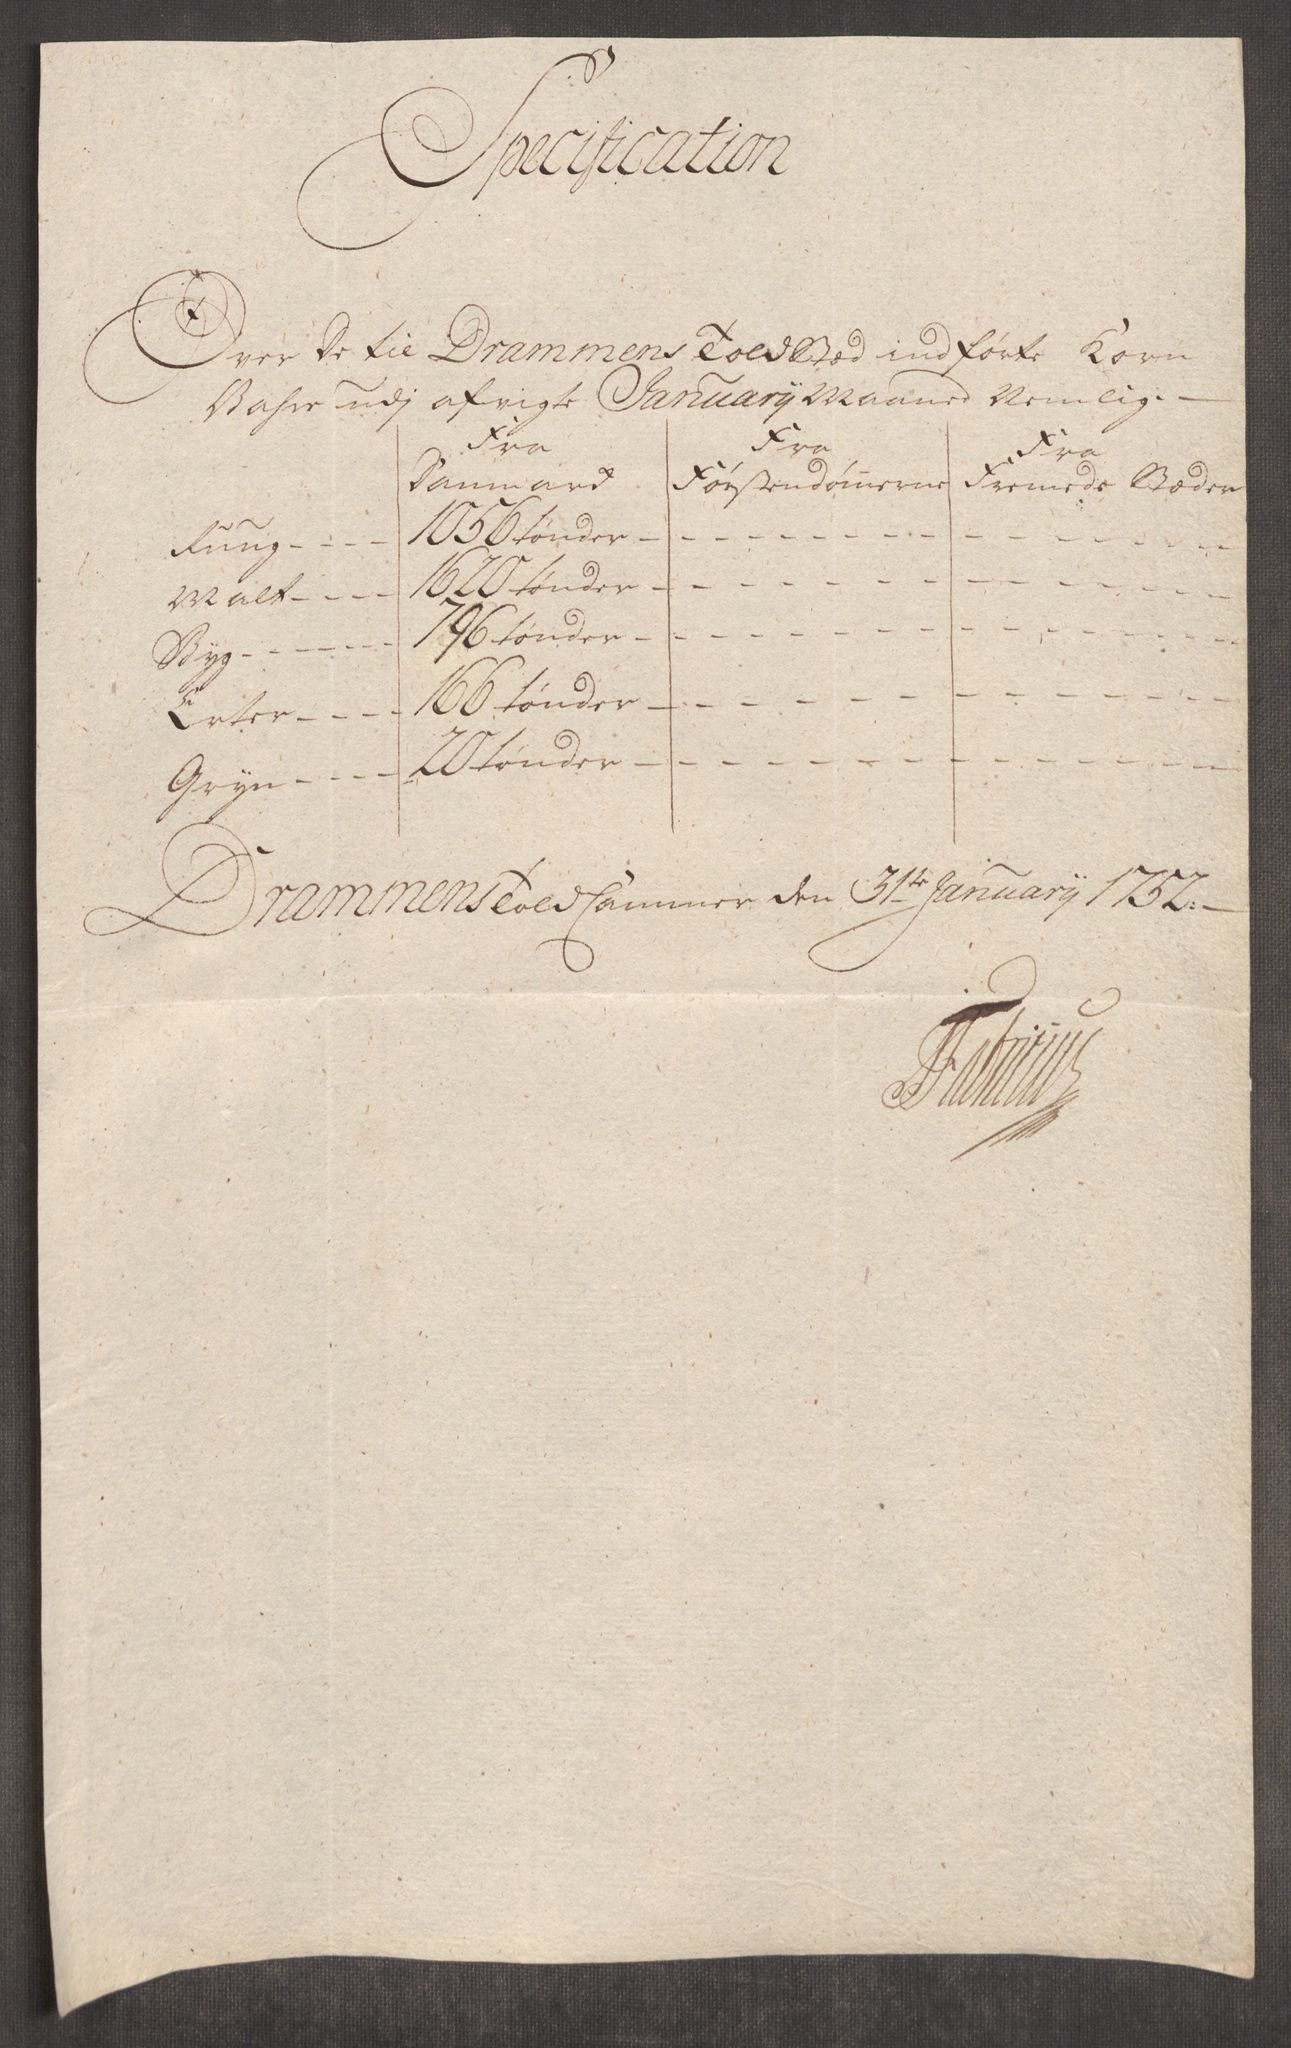 Specification
Over de til Drammens ToldStæd indførte Korn
Vahre udj afvigte Januarij Maaned Nemlig. —
Fra Fra Fra
Danmark Førstendømerne Fremede Stæder
Rung - - - 1056 tønder - - - - - - - - - - - - - - -
Malt - - - 1620 tønder - - - - - - - - - - - - - - -
Byg - - - - - 796 tønder - - - - - - - - - - - - - - -
Erter - - - - 166 tønder - - - - - - - - - - - - - - -
Gryn - - - - 20 tønder - - - - - - - - - - - - - - -
Drammens Told Cammer den 31te Januarij 1752. —
Fabricius